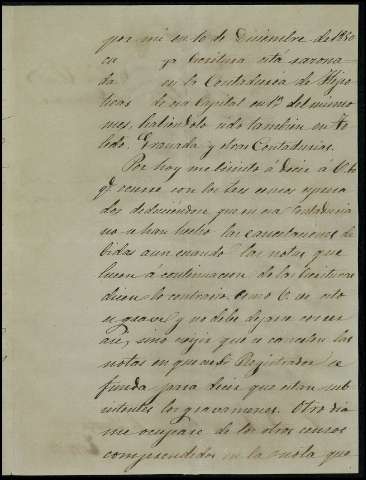 por mi en 10 de Diciembre de 1850
ca ya Escritura está razona-
da en la Contaduria de Hipo
tecas de esa Capital en 1º del mismo
mes, habiendolo sido tambien en To
ledo, Granada y otras Contadurias.
Por hoy me limito á decir á V.
qe. ocurre con los tres censos espresa
dos deduciendose que en esa Contaduria
no se han hecho las cancelaciones de
bidas aun cuando las notas que
lucen á continuacion de las Escrituras
dicen lo contrario. Como V. ve esto
es grave y no debe dejarse correr
asi, sino exijir que se cancelen las
notas en que ese Sr. Registrador se
funda para decir que estan sub
sistentes los gravamenes. Otro dia
me ocupare de los otros censos
comprendidos en la nota que